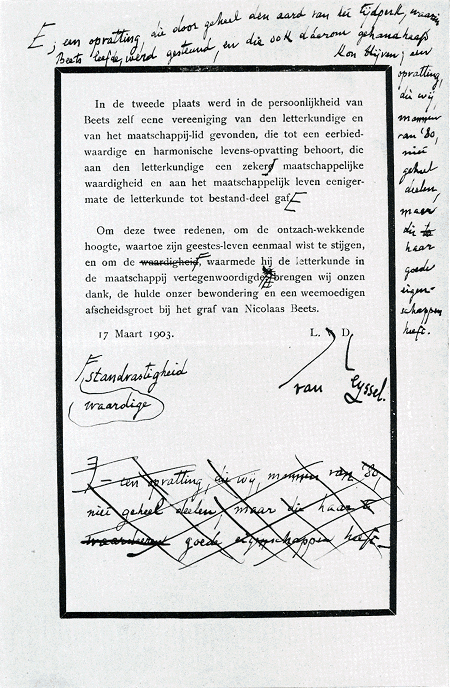 E, een opvatting, die door geheel den aard van het tijdperk, waarin
Beets leefde, werd gesteund, en die ook daarom gehandhaafd
kon blijven; een
opvatting,
die wij,
mannen
van '80,
niet
geheel
deelen,
maar
die
haar
goede
eigen-
schappen
heeft.
In de tweede plaats werd in de persoonlijkheid van
Beets zelf eene vereeniging van den letterkundige en
van het maatschappij-lid gevonden, die tot een eerbied-
waardige en harmonische levens-opvatting behoort, die
aan den letterkundige een zekere maatschappelijke
waardigheid en aan het maatschappelijk leven eeniger-
mate de letterkunde tot bestand-deel gaf E
Om deze twee redenen, om de ontzach-wekkende
hoogte, waartoe zijn geestes-leven eenmaal wist te stijgen,
en om de waardigheid, waarmede hij de letterkunde in
de maatschappij vertegenwoordigde, brengen wij onzen
dank, de hulde onzer bewondering en een weemoedigen
afscheidsgroet bij het graf van Nicolaas Beets.
17 Maart 1903. L. v. D.
van Lyssel.
F standvastigheid
waardige
– een opvatting, die wij, mannen van '80,
niet geheel deelen, maar die haar
waardeerend goede eigenschappen heeft.